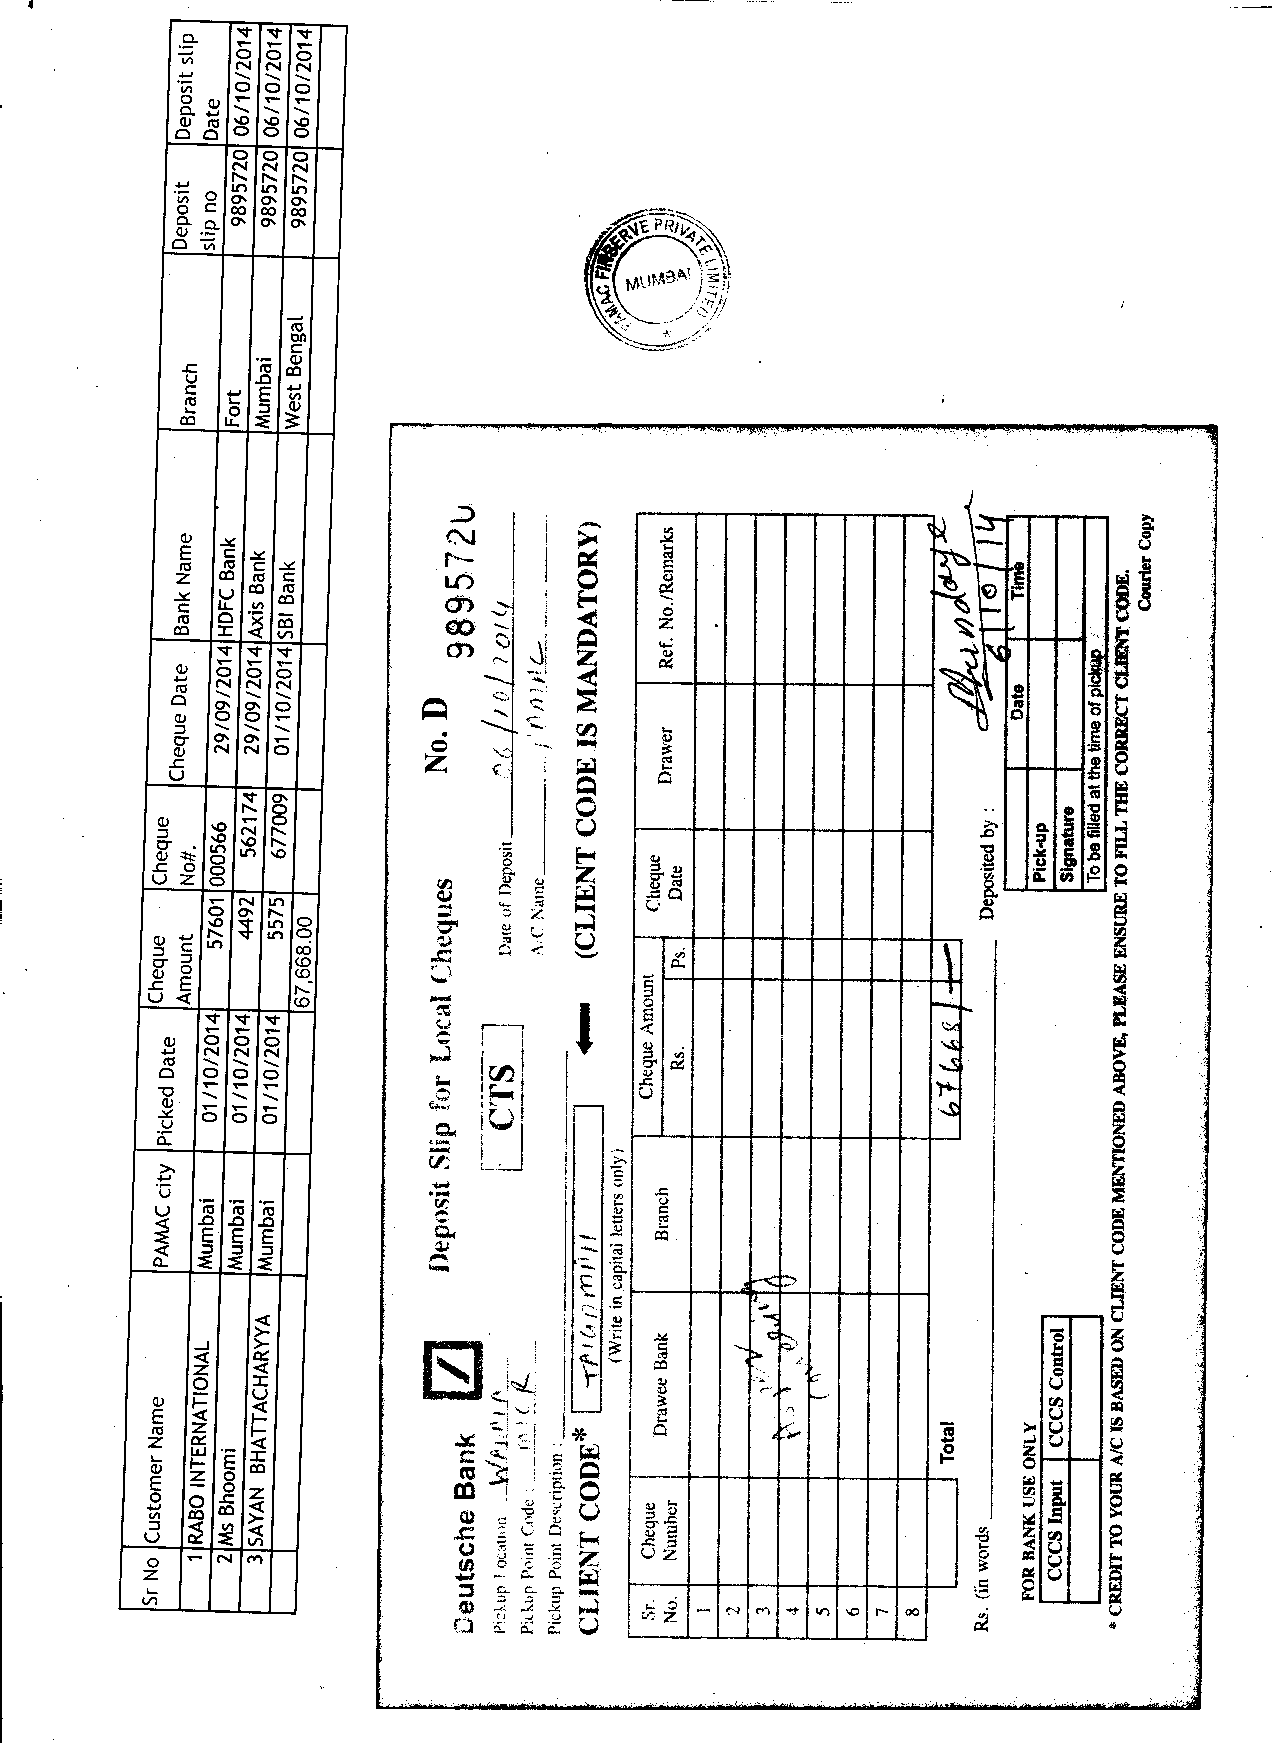 Sr No Customer Name PAMAC city Picked Date Cheque Amount Cheque No#. Cheque Date Bank Name Branch Deposit slip no Deposit slip Date
1 RABO INTERNATIONAL Mumbai 01/10/2014 57601 000566 29/09/2014 HDFC Bank Fort 9895720 06/10/2014
2 Ms Bhoomi Mumbai 01/10/2014 4492 562174 29/09/2014 Axis Bank Mumbai 9895720 06/10/2014
3 SAYAN BHATTACHARYYA Mumbai 01/10/2014 5575 677009 01/10/2014 SBI Bank West Bengal 9895720 06/10/2014
67,668.00
PAMAC FINSERVE PRIVATE LIMITED
MUMBAI
Deutsche Bank Deposit Slip for Local Cheques No. D 9895720
Pickup Location CTS Date of Deposit 06/10/2014
Pickup Point Code : A/C Name PAMAC
Pickup Point Description :
CLIENT CODE* (CLIENT CODE IS MANDATORY)
(Write in capital letters only)
Sr. No. Cheque Number Drawee Bank Branch Cheque Amount Rs. Ps. Cheque Date Drawer Ref. No./Remarks
1
2
3
4
5
6
7
8
Total 67668/-
Rs. (in words Deposited by :
6/10/14
FOR BANK USE ONLY
CCCS Input CCCS Control
Date Time
Pick-up
Signature
To be filled at the time of pickup
* CREDIT TO YOUR A/C IS BASED ON CLIENT CODE MENTIONED ABOVE, PLEASE ENSURE TO FILL THE CORRECT CLIENT CODE.
Courier Copy